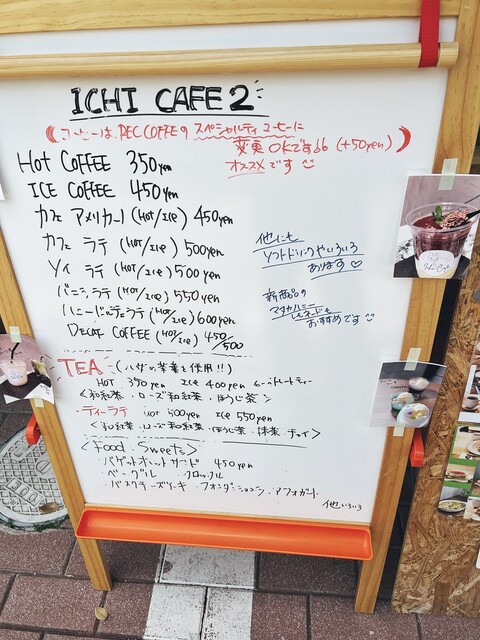 ICHI CAFE 2
コーヒーは、REC COFFEEの スペシャルティコーヒーに
変更 OKです (+50yen)
オススメです
Hot COFFEE 350yen
ICE COFFEE 450yen
カフェ アメリカーノ (HOT/ICE) 450yen
カフェ ラテ (HOT/ICE) 500yen
ソイ ラテ (HOT/ICE) 500yen
バニラ ラテ (HOT/ICE) 550yen
ハニー ラテ (HOT/ICE) 600yen
DECAF COFFEE (HOT/ICE) 450/500
他にも
ソフトドリンクやいろいろ
あります♡
新商品の
マヌカハニー
レモネードも
おすすめです
TEA (八女の茶葉を使用!!)
HOT 350yen ICE 400yen
<和紅茶・ローズ和紅茶・ほうじ茶>
・ティーラテ HOT 500yen ICE 550yen
<和紅茶・ローズ和紅茶・ほうじ茶・抹茶・チャイ>
<Food・Sweets>
・バゲットホットサンド 450yen
・ベーグル ・クロッフル
・バスクチーズケーキ・フォンダンショコラ・アフォガート
他いろいろ